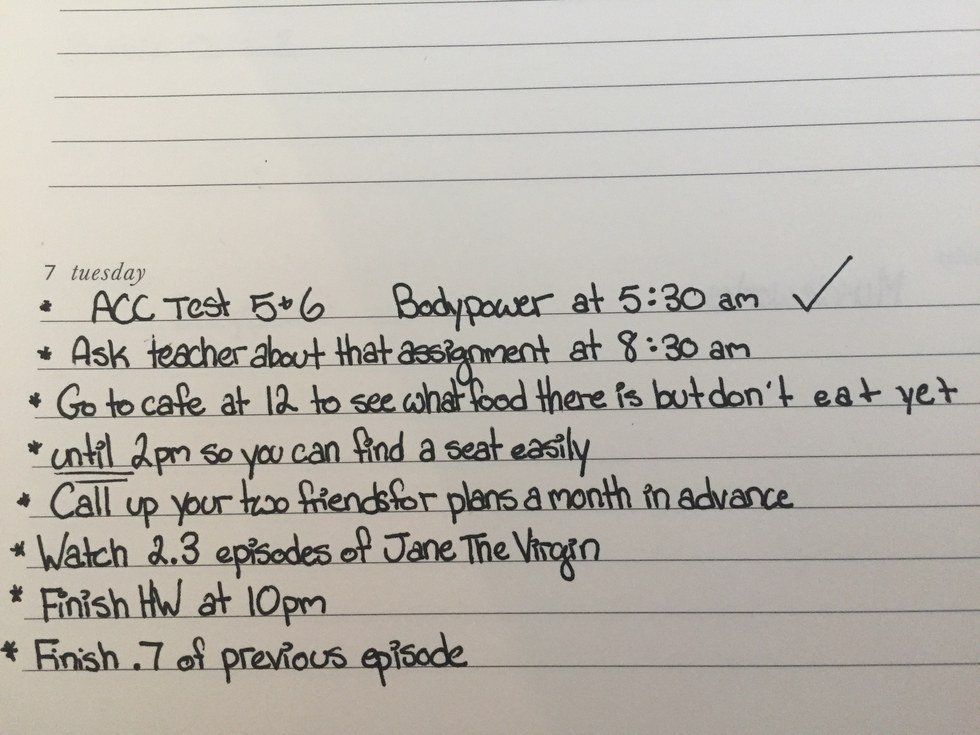 7 tuesday
* ACC Test 5+6 Bodypower at 5:30 am ✓
* Ask teacher about that assignment at 8:30 am
* Go to cafe at 12 to see what food there is but don't eat yet
* until 2pm so you can find a seat easily
* Call up your two friends for plans a month in advance
* Watch 2.3 episodes of Jane The Virgin
* Finish HW at 10pm
* Finish .7 of previous episode